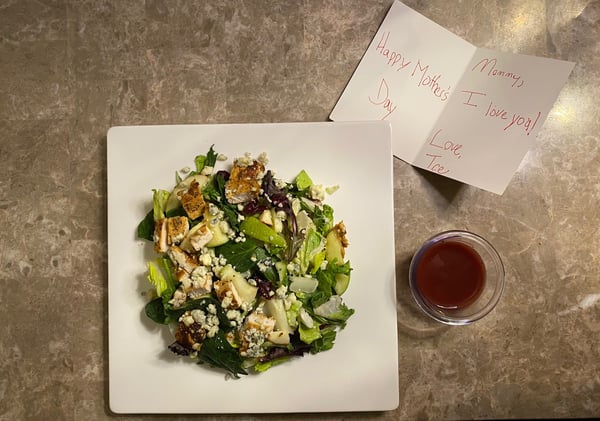 Happy Mother's
Day
Mommy,
I love you!
Love,
Trey